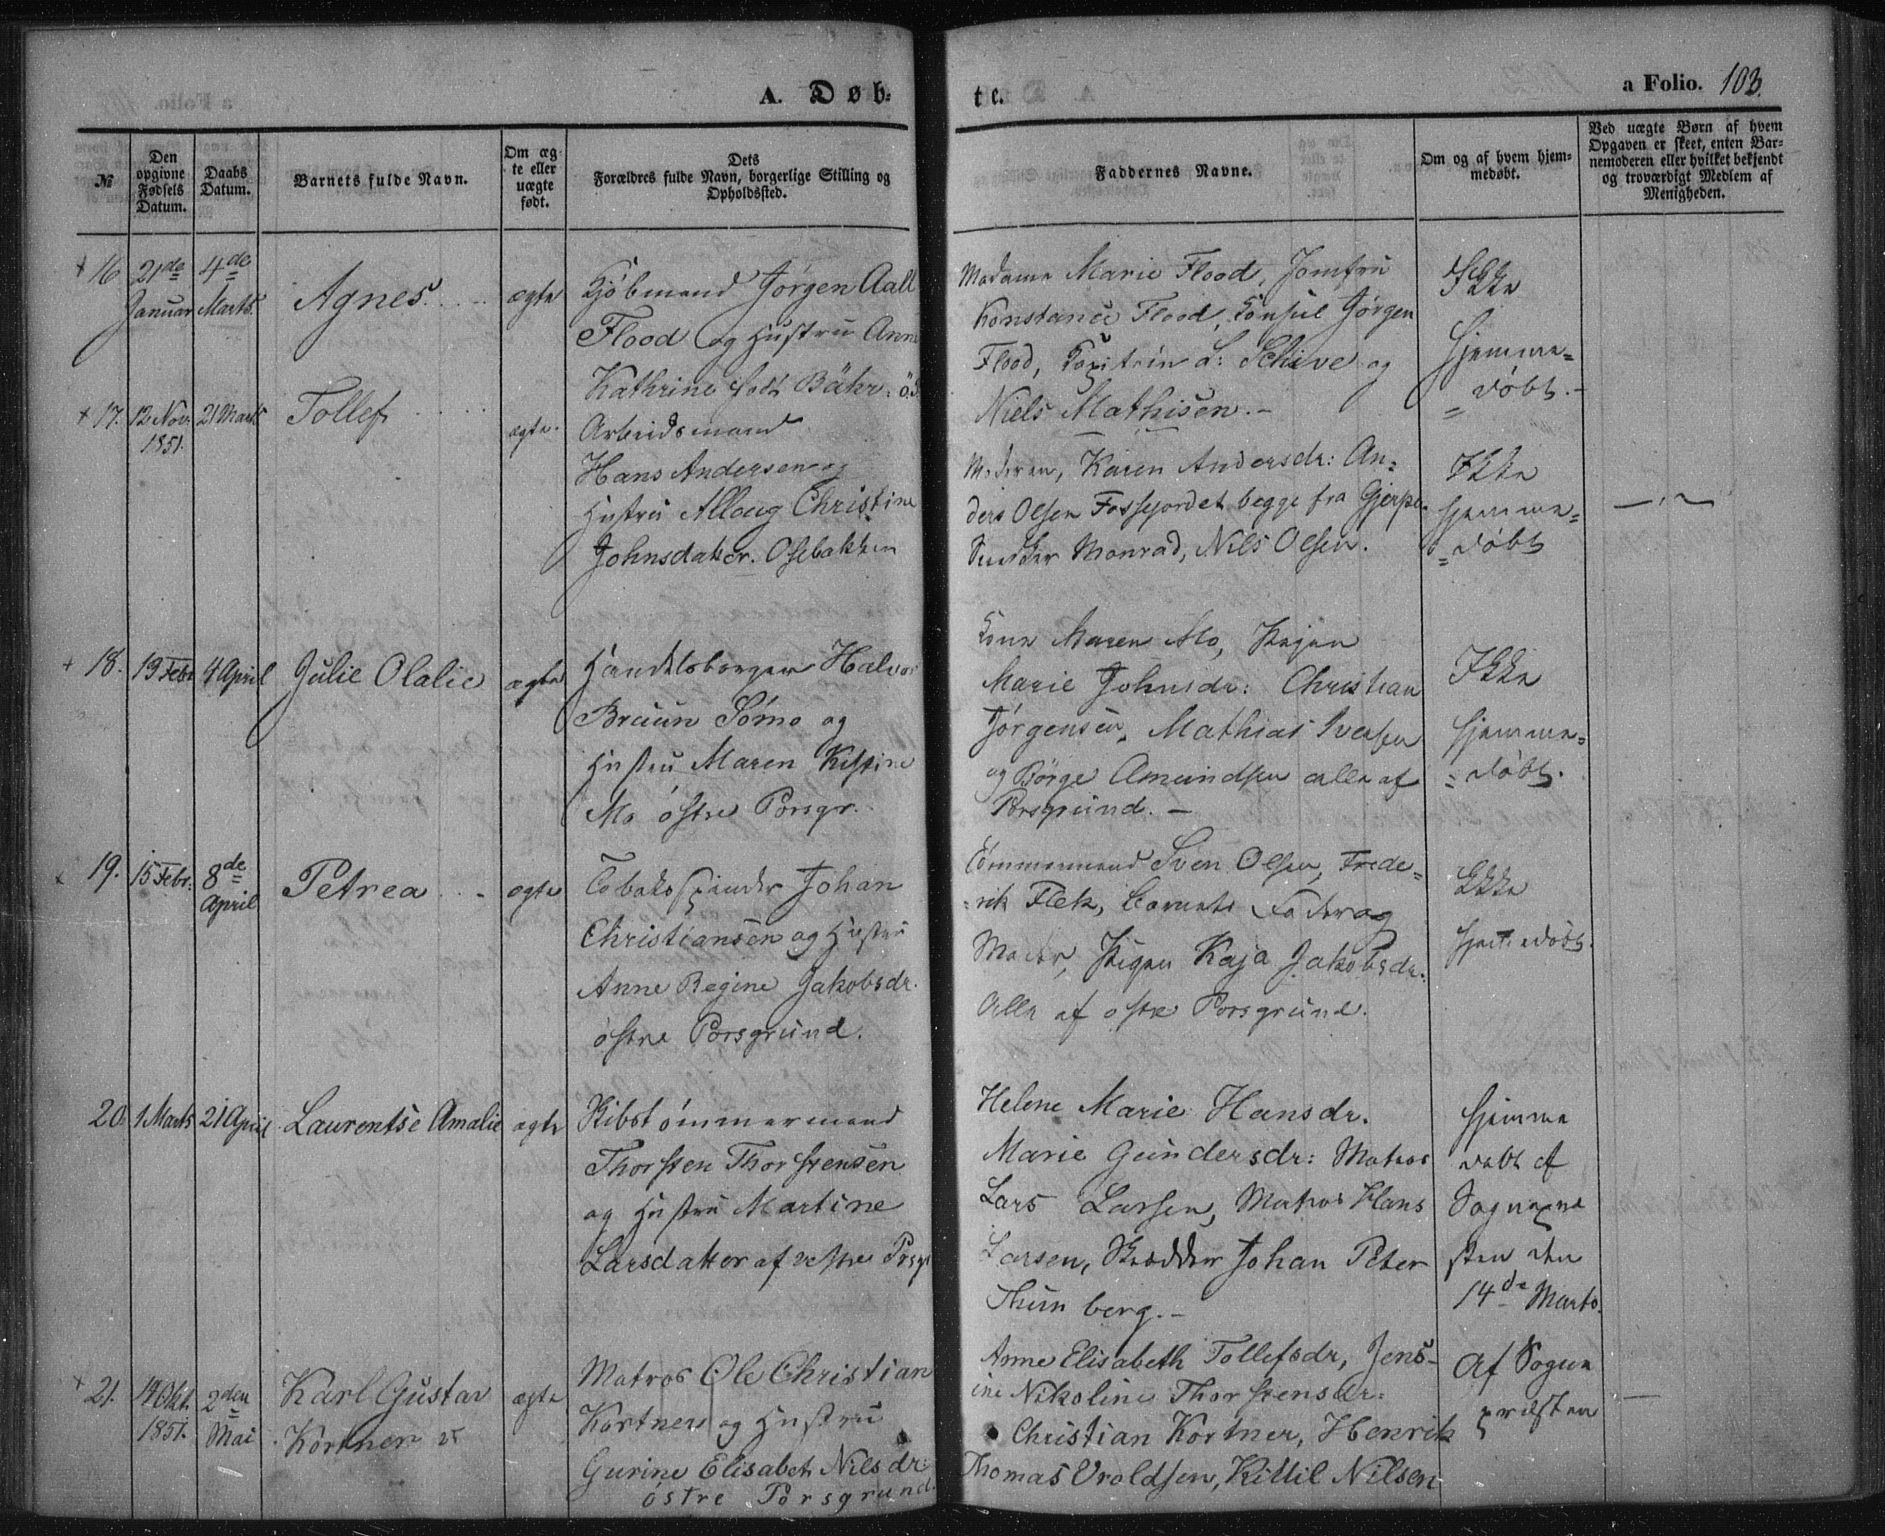 A. Døb-
te.
a Folio. 103.
№
Den opgivne Fødsels Datum.
Daabs Datum.
Barnets fulde Navn.
Om ægte eller uægte født.
Dets Forældres fulde Navn, borgerlige Stilling og Opholdssted.
Faddernes Navne.
Om og af hvem hjemmedøbt.
Ved uægte Børn af hvem Opgaven er skeet, enten Barnemoderen eller hvilket bekjendt og troværdigt Medlem af Menigheden.
16
21de Januar
4de Marts.
Agnes.
ægte
Kjöbmand Jörgen Aall
Flood og Hustru Anne
Kathrine født Bähr. ö.
Madame Marie Flood, Jomfru
Konstance Flood, Konsul Jörgen
Flood, Kapitein L: Schive og
Niels Mathisen.-
Ikke
Hjemme=
=döbt.-
17.
12 Nov. 1851.
21 Marts
Tollef
ægte.
Arbeidsmand
Hans Andersen og
Hustru Alloug Christine
Johnsdatter. Osebakken
Moderen, Karen Andersdr: An=
ders Olsen Fossejordet begge fra Gjerpen
Snedker Monrad, Nils Olsen.
Ikke
hjemme=
=döbt
18.
19 Febr
4 April
Julie Olalie
ægte
Handelsborger Halvor
Bruun Sömo og
Hustru Maren Kistine
Mo östre Porsgr.
Kone Maren Mo, Pigen
Marie Johnsdr: Christian
Jörgensen, Mathias Iversen
og Börge Amundsen alle af
Porsgrund.-
Ikke
hjemme=
=döbt.
19.
15 Febr.
8de April
Petrea
ægte
Tobaksspinder Johan
Christiansen og Hustru
Anne Regine Jakobsdr.
östre Porsgrund.
Tömmermand Sven Olsen, Frede=
=rik Flek, Barnets Fader og
Moder, Pigen Kaja Jakobsdr.
Alle af östre Porsgrund.
Ikke
hjemmedöbt.
20.
1 Marts
21 April
Laurentse Amalie
ægte
Skibstömmermand
Thorsten Thorstensen
og Hustru Martine
Larsdatter af vestre Porsgr
Helene Marie Hansdr.
Marie Gundersdr: Matros
Lars Larsen, Matros Hans
Larsen, Skrædder Johan Peter
Thunberg.-
Hjemme
döbt af
Sognepræ
sten den
14de Marts.
21.
14 Okt. 1851.
2den Mai
Karl Gustav
Körtner
ægte
Matros Ole Christian
Körtner og Hustru
Gurine Elisabet Nilsdr:
östre Porsgrund.
Anne Elisabeth Tollefsdr, Jens-
ine Nikoline Thorstensdr:
Christian Kortner, Henrik
Thomas Uroldsen, Kittil Nilsen
Af Sogne
præsten